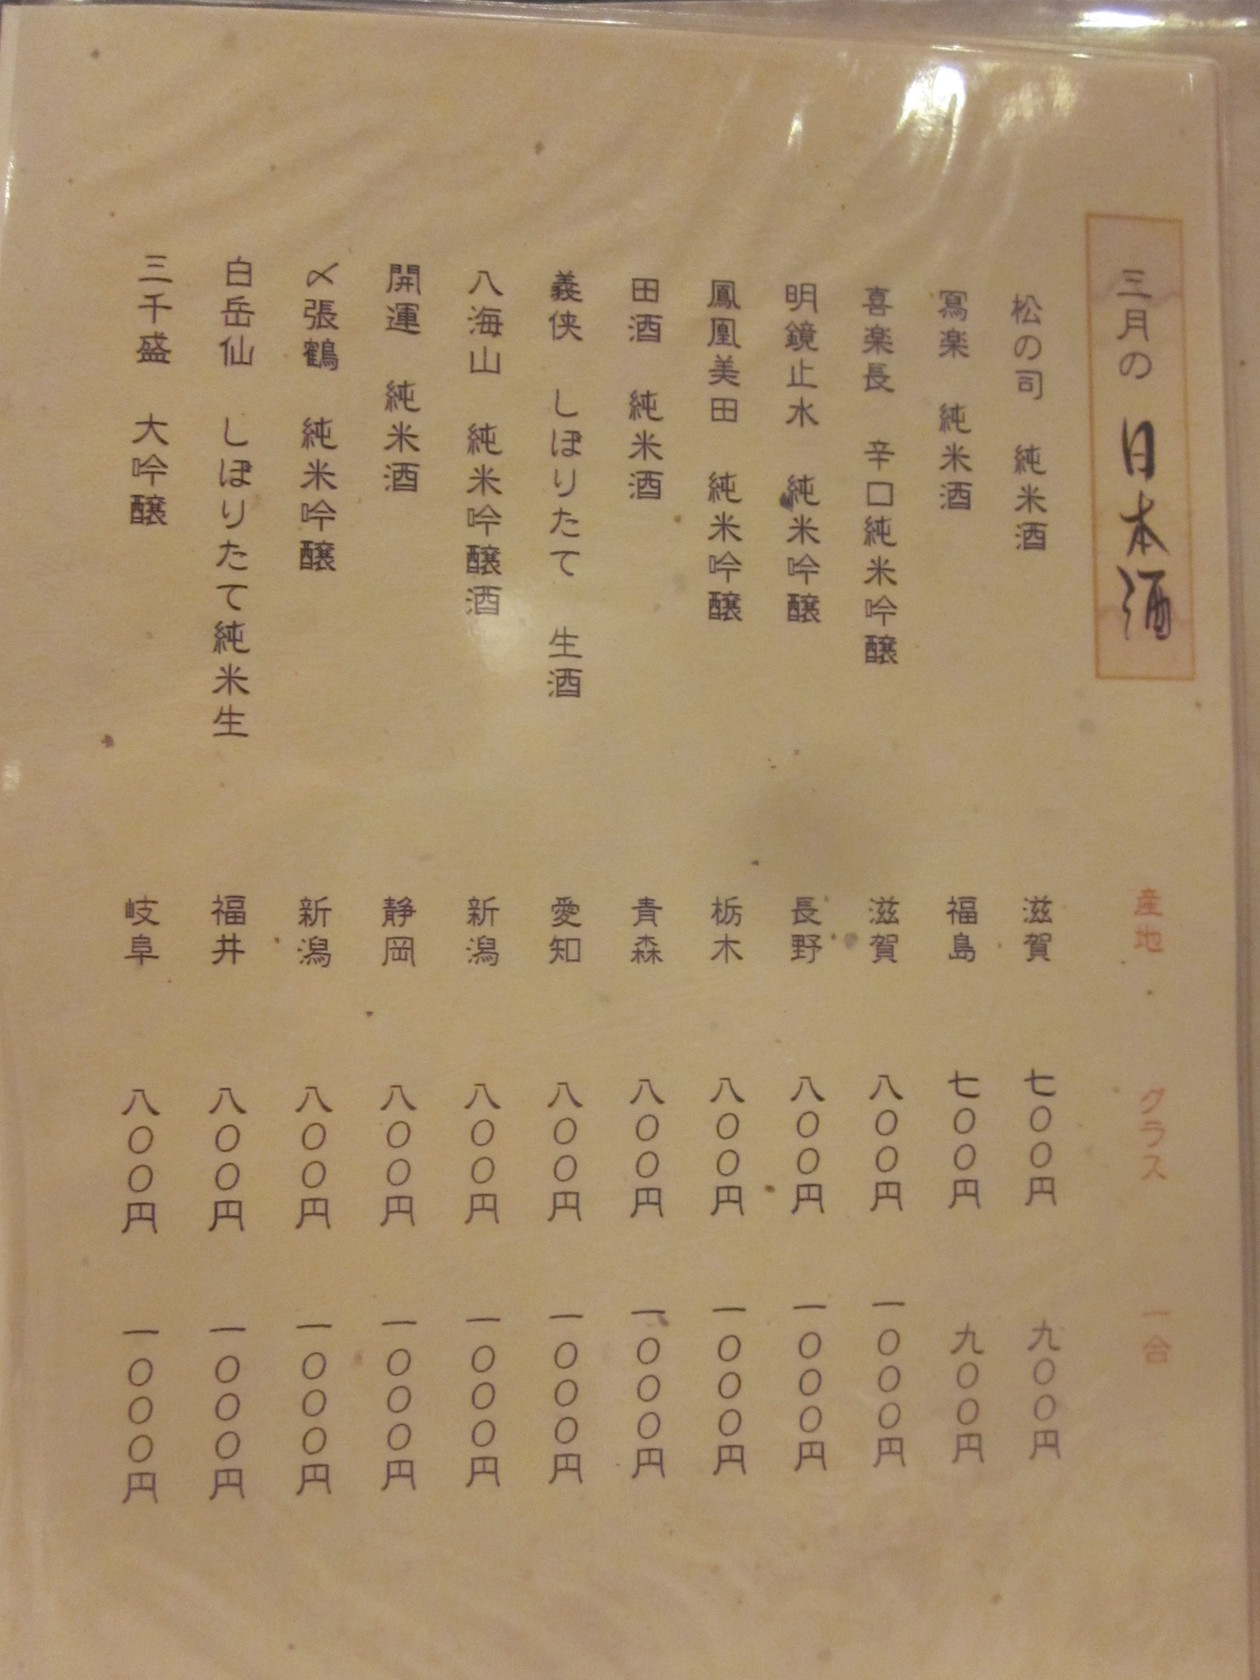 三月の 日本酒 産地 グラス 一合
松の司 純米酒 滋賀 七〇〇円 九〇〇円
冩楽 純米酒 福島 七〇〇円 九〇〇円
喜楽長 辛口純米吟醸 滋賀 八〇〇円 一〇〇〇円
明鏡止水 純米吟醸 長野 八〇〇円 一〇〇〇円
鳳凰美田 純米吟醸 栃木 八〇〇円 一〇〇〇円
田酒 純米酒 青森 八〇〇円 一〇〇〇円
義侠 しぼりたて 生酒 愛知 八〇〇円 一〇〇〇円
八海山 純米吟醸酒 新潟 八〇〇円 一〇〇〇円
開運 純米酒 静岡 八〇〇円 一〇〇〇円
〆張鶴 純米吟醸 新潟 八〇〇円 一〇〇〇円
白岳仙 しぼりたて純米生 福井 八〇〇円 一〇〇〇円
三千盛 大吟醸 岐阜 八〇〇円 一〇〇〇円